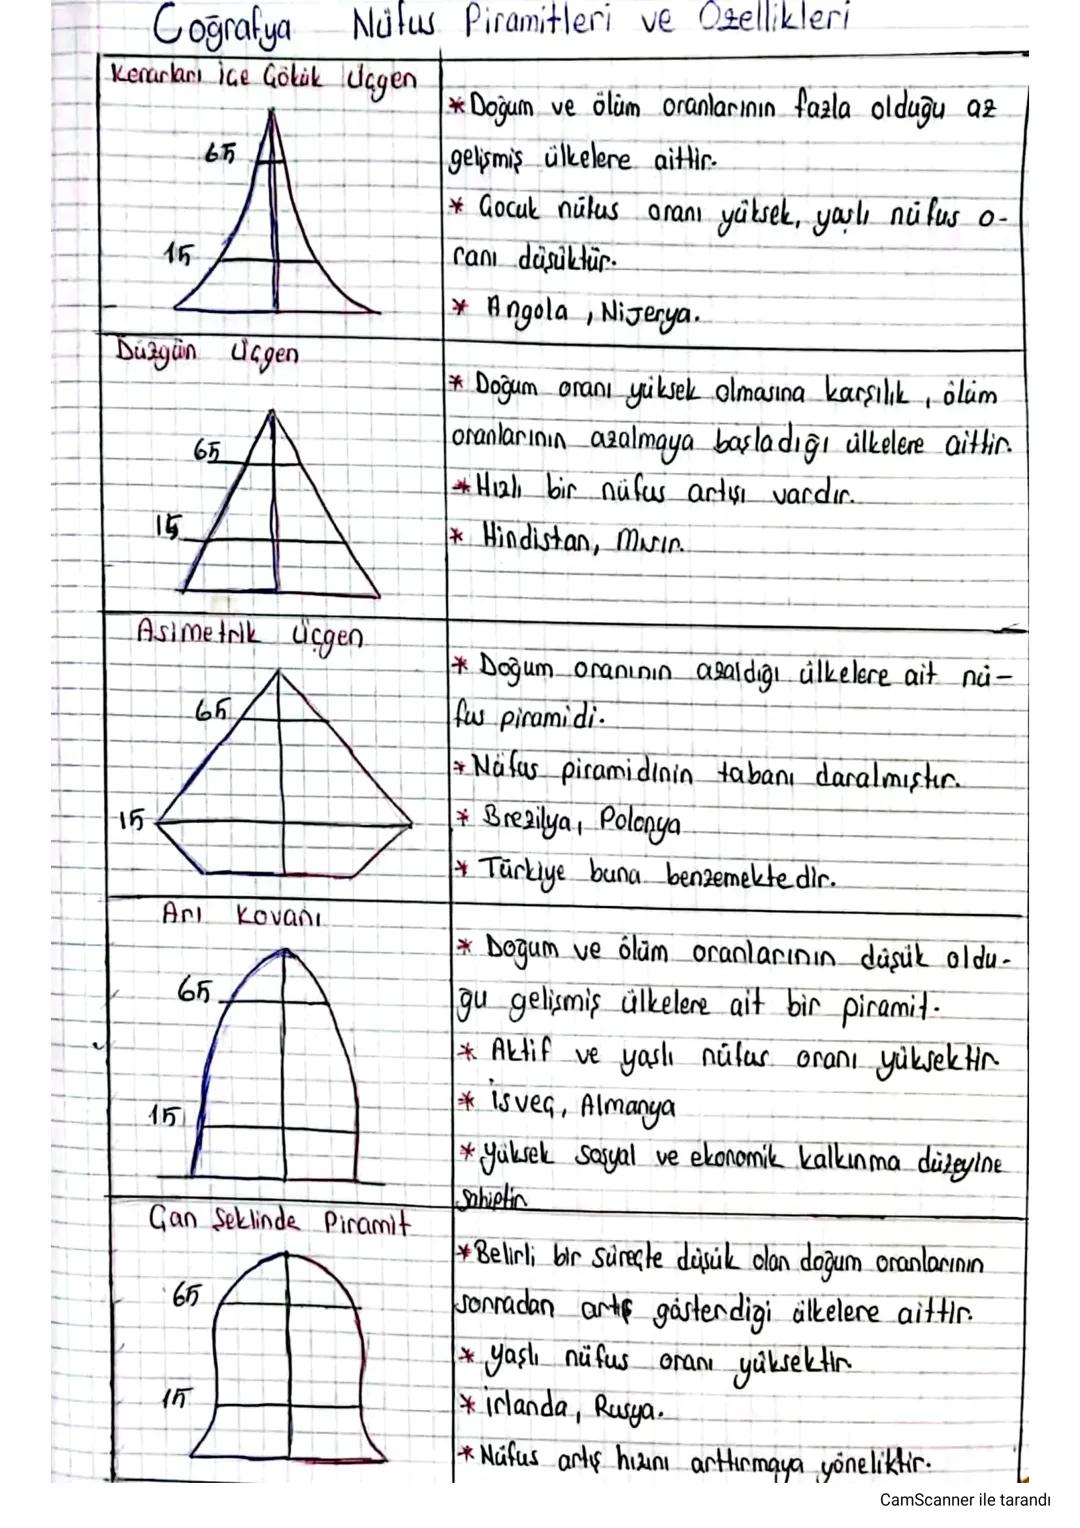 Coğrafya Nüfus Piramitleri ve Özellikleri
Kenarları İçe Çökük Üçgen
65
15
* Doğum ve ölüm oranlarının fazla olduğu az
gelişmiş ülkelere aittir.
* Çocuk nüfus oranı yüksek, yaşlı nüfus o-
ranı düşüktür.
* Angola, Nijerya.
Düzgün Üçgen
65
15
* Doğum oranı yüksek olmasına karşılık, ölüm
oranlarının azalmaya başladığı ülkelere aittir.
* Hızlı bir nüfus artışı vardır.
* Hindistan, Mısır.
Asimetrik Üçgen
65
15
* Doğum oranının azaldığı ülkelere ait nü-
fus piramidi.
* Nüfus piramidinin tabanı daralmıştır.
* Brezilya, Polonya
* Türkiye buna benzemektedir.
Arı Kovanı
65
15
* Doğum ve ölüm oranlarının düşük oldu-
ğu gelişmiş ülkelere ait bir piramit.
* Aktif ve yaşlı nüfus oranı yüksektir
* İsveç, Almanya
* Yüksek sosyal ve ekonomik kalkınma düzeyine
sahiptir
Çan Şeklinde Piramit
65
15
* Belirli bir süreçte düşük olan doğum oranlarının
sonradan artış gösterdiği ülkelere aittir.
* Yaşlı nüfus oranı yüksektir.
* İrlanda, Rusya.
* Nüfus artış hızını arttırmaya yöneliktir.
CamScanner ile tarandı